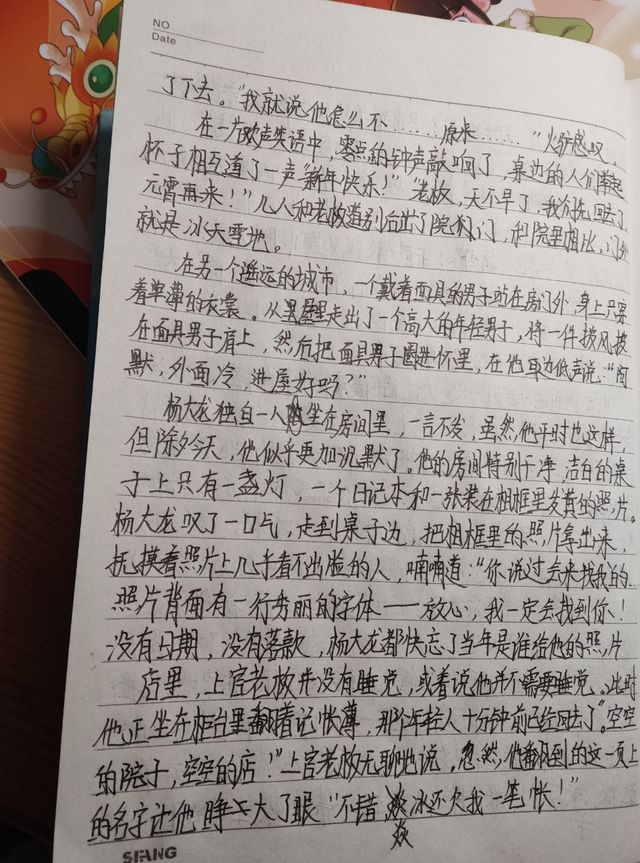 NO
Date
了下去。“我就说他怎么不……原来……”火骄感叹。
在一片欢声笑语中，零点的钟声敲响了，桌边的人们举起
杯子相互道了一声“新年快乐！”“老板，天不早了，我们先回去了，
元宵再来！”几人和老板道别后出了院门，和院里相比，门外
就是冰天雪地。
在另一个遥远的城市，一个戴着面具的男子站在房门外，身上只穿
着单薄的衣裳。从黑屋里走出了一个高大的年轻男子，将一件披风披
在面具男子肩上，然后把面具男子圈进怀里，在他耳边低声说：“阎
默，外面冷，进屋好吗？”
杨大龙独自一人坐在房间里，一言不发，虽然他平时也这样，
但除夕今天，他似乎更加沉默了。他的房间特别干净，洁白的桌
子上只有一盏灯，一个日记本和一张装在相框里发黄的照片。
杨大龙叹了一口气，走到桌子边，把相框里的照片拿出来，
抚摸着照片上几乎看不出脸的人，喃喃道：“你说过会来找我的…
照片背面有一行秀丽的字体——放心，我一定会找到你！
没有日期，没有落款，杨大龙都快忘了当年是谁给他的照片
店里，上官老板并没有睡觉，或着说他并不需要睡觉。此时
他正坐在柜台里翻着记帐薄，那个年轻人十分钟前已经回去了。“空空
的院子，空空的店！”上官老板无聊地说。忽然，他翻到的这一页上
的名字让他睁大了眼“不错 冰还欠我一笔帐！”
焱
SIFANG